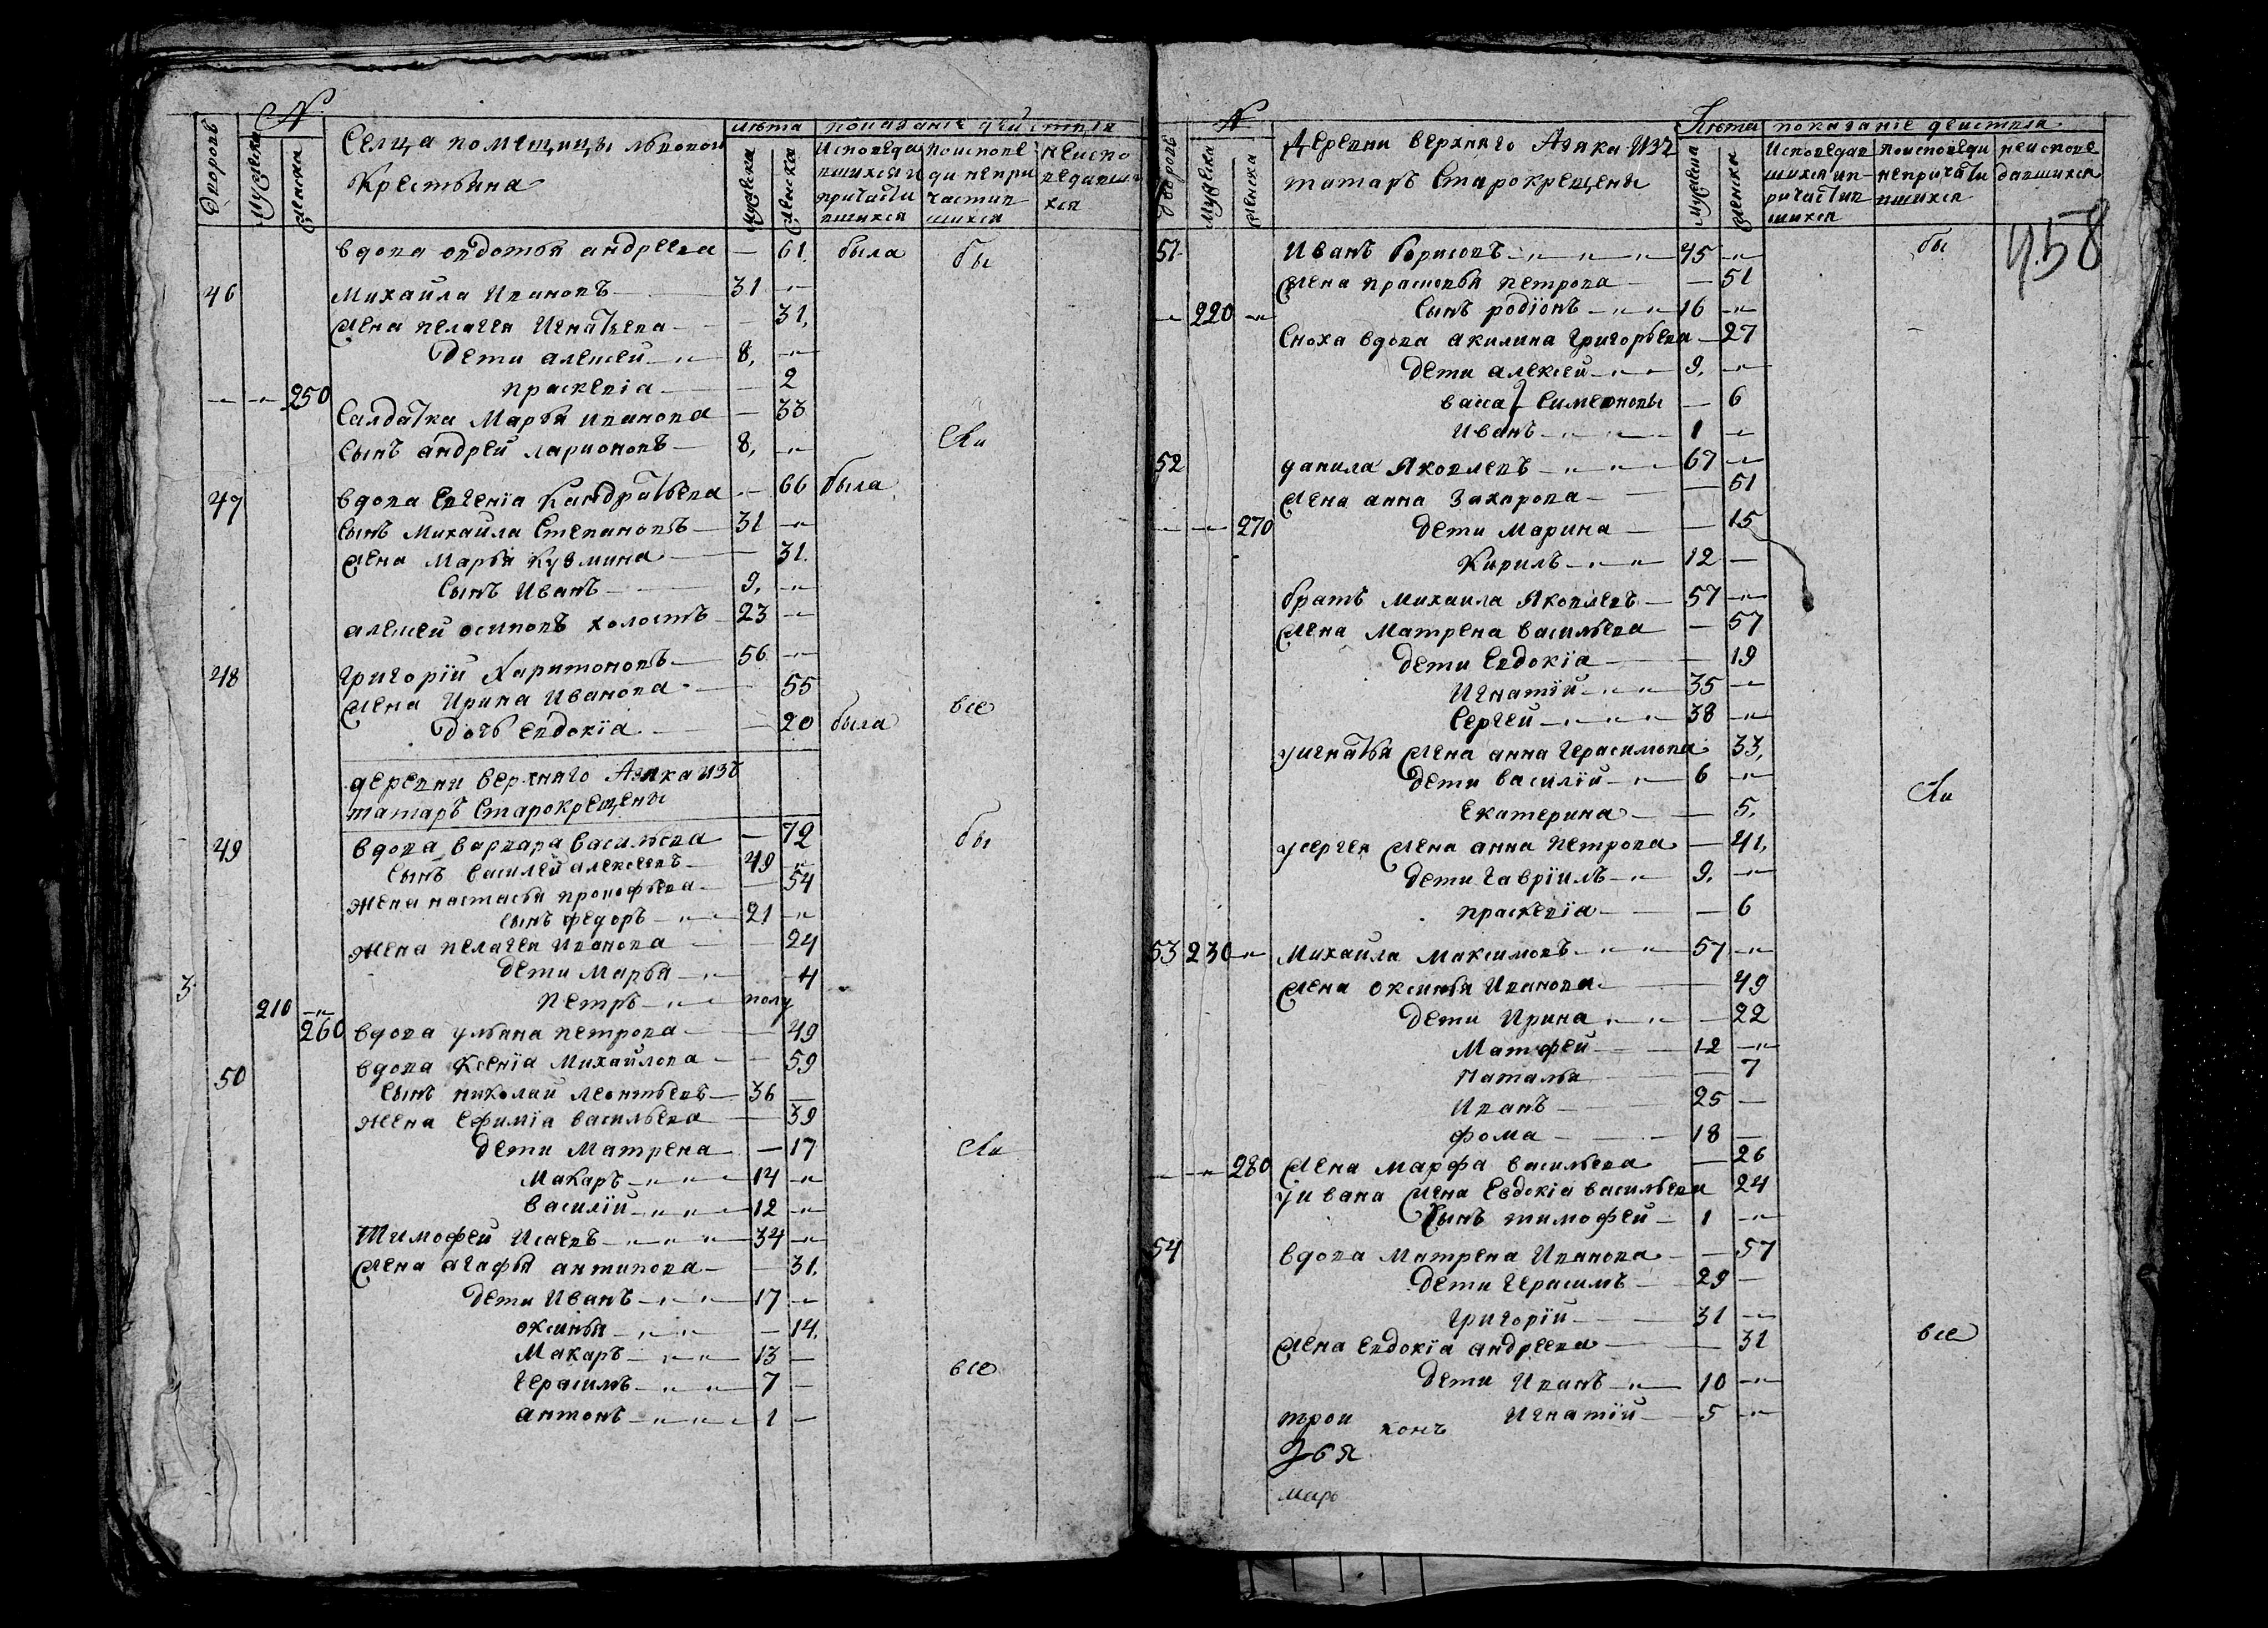 №
Дворовъ
Мужеска
Женска
Селца помещицы львовой
Крестьяна
лѣта
показаніе действия
мужеска
женска
Исповеда
вшихся и
причасти
вшихся
По испове
ди не при
частив
шихся
не испо
ведавши
хся
вдова овдотья андреева — 61 была бы
46 Михаила Ивановъ — 31
жена пелагея Игнатьева — 31
дети алексей — 8
250 праскевіа — 2
Салдатка Марья иванова — 33
сынъ андрей ларионовъ — 8 ли
47 вдова Евгенїа Кандратьева — 66 была
сынъ Михаила Степановъ — 31
жена Марья Кузмина — 31
Сынъ Иванъ — 9
алексей осиповъ холостъ 23
48 Григорїй Харитоновъ — 56
жена Ирина Иванова — 55 все
дочь Евдокїа — 20 была
деревни верхняго Азяка изъ
татаръ Старокрещены
49 вдова варвара васильева — 72 бы
сынъ василей алексеевъ — 49
жена настасья прокофьева — 54
сынъ федоръ — 21
жена пелагея Иванова — 24
дети Марья — 4
3
Петръ — полу
210
260 вдова ульяна петрова — 49
50 вдова Ксенїа Михайлова — 59
сынъ николай леонтьевъ — 36
жена Ефимїа васильева — 39
дети Матрена — 17 ли
Макаръ — 14
василїй — 12
Тимофей Исаевъ — 34
жена агафья антипова — 31
дети Иванъ — 17
оксинья — 14
Макаръ — 13
Герасимъ — 7 все
антонъ — 1
№
Дворовъ
Мужеска
женска
Деревни верхняго Азяка Изъ
татаръ Старокрещены
Лѣта
показанїе действия
мужеска
женска
Исповедав
шихся ип-
ричастив
шихся
поисповеди
непричасти
вшихся
неиспове
давшихся
458
51 Иванъ борисовъ — 45 бы
жена прасковья петрова — 51
220 Сынъ родїонъ — 16
Сноха вдова акилина григорьева — 27
дети алексей — 9
васа } Симеоновы — 6
Иванъ — 1
52 данила Яковлевъ — 67
жена анна Захарова — 51
270 дети Марина — 15
Кирилъ — 12
братъ михаила Яковлевъ — 57
жена Матрена васильева — 57
дети Евдокїа — 19
Игнатїй — 35
Сергей — 38
уигнатья жена анна герасимова 33
дети василїй — 6 ли
Екатерина — 5
усергея жена анна петрова — 41
дети гаврїилъ — 9
праскевїа — 6
53 230 Михаила максимовъ — 57
жена оксинья Иванова — 49
дети Ирина — 22
Матфей — 12
Наталья — 7
Иванъ — 25
фома — 18
280 жена марфа васильева — 26
у ивана жена Евдокїа васильева 24
Сынъ тимофей — 1
54 вдова Матрена Иванова — 57
дети герасимъ — 29
Григорїй — 31
жена Евдокїа андреева — 31 все
дети Иванъ — 10
Игнатїй — 5
трои конъ
маро